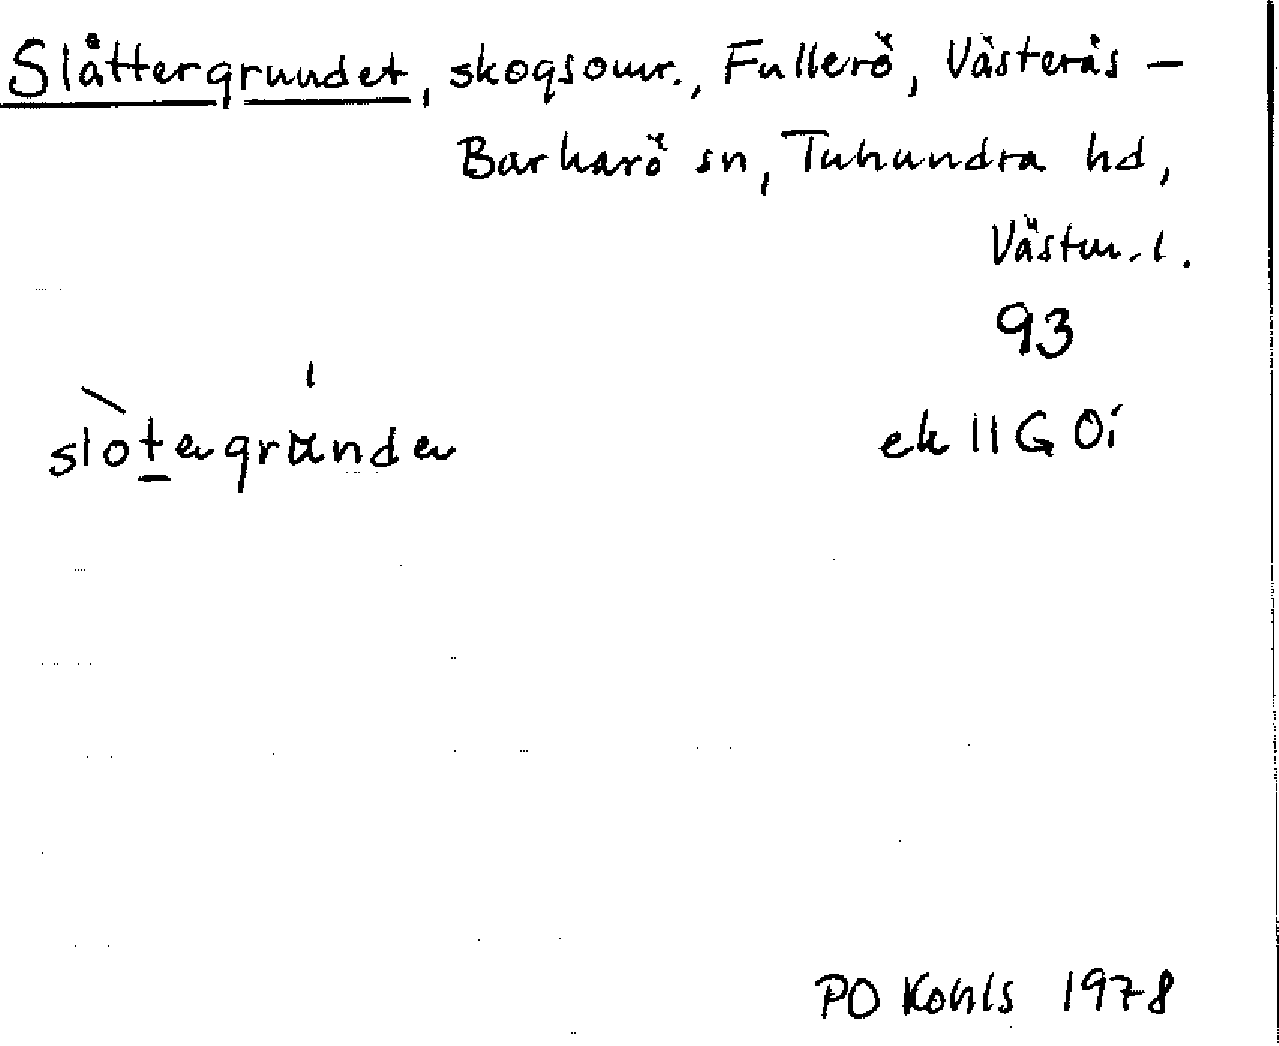 Slåttergrundet, skogsomr., Fullerö, Västerås –
Barkarö sn, Tuhundra hd,
Västm. l.
93
ek 11G 0i
PO Kohls 1978